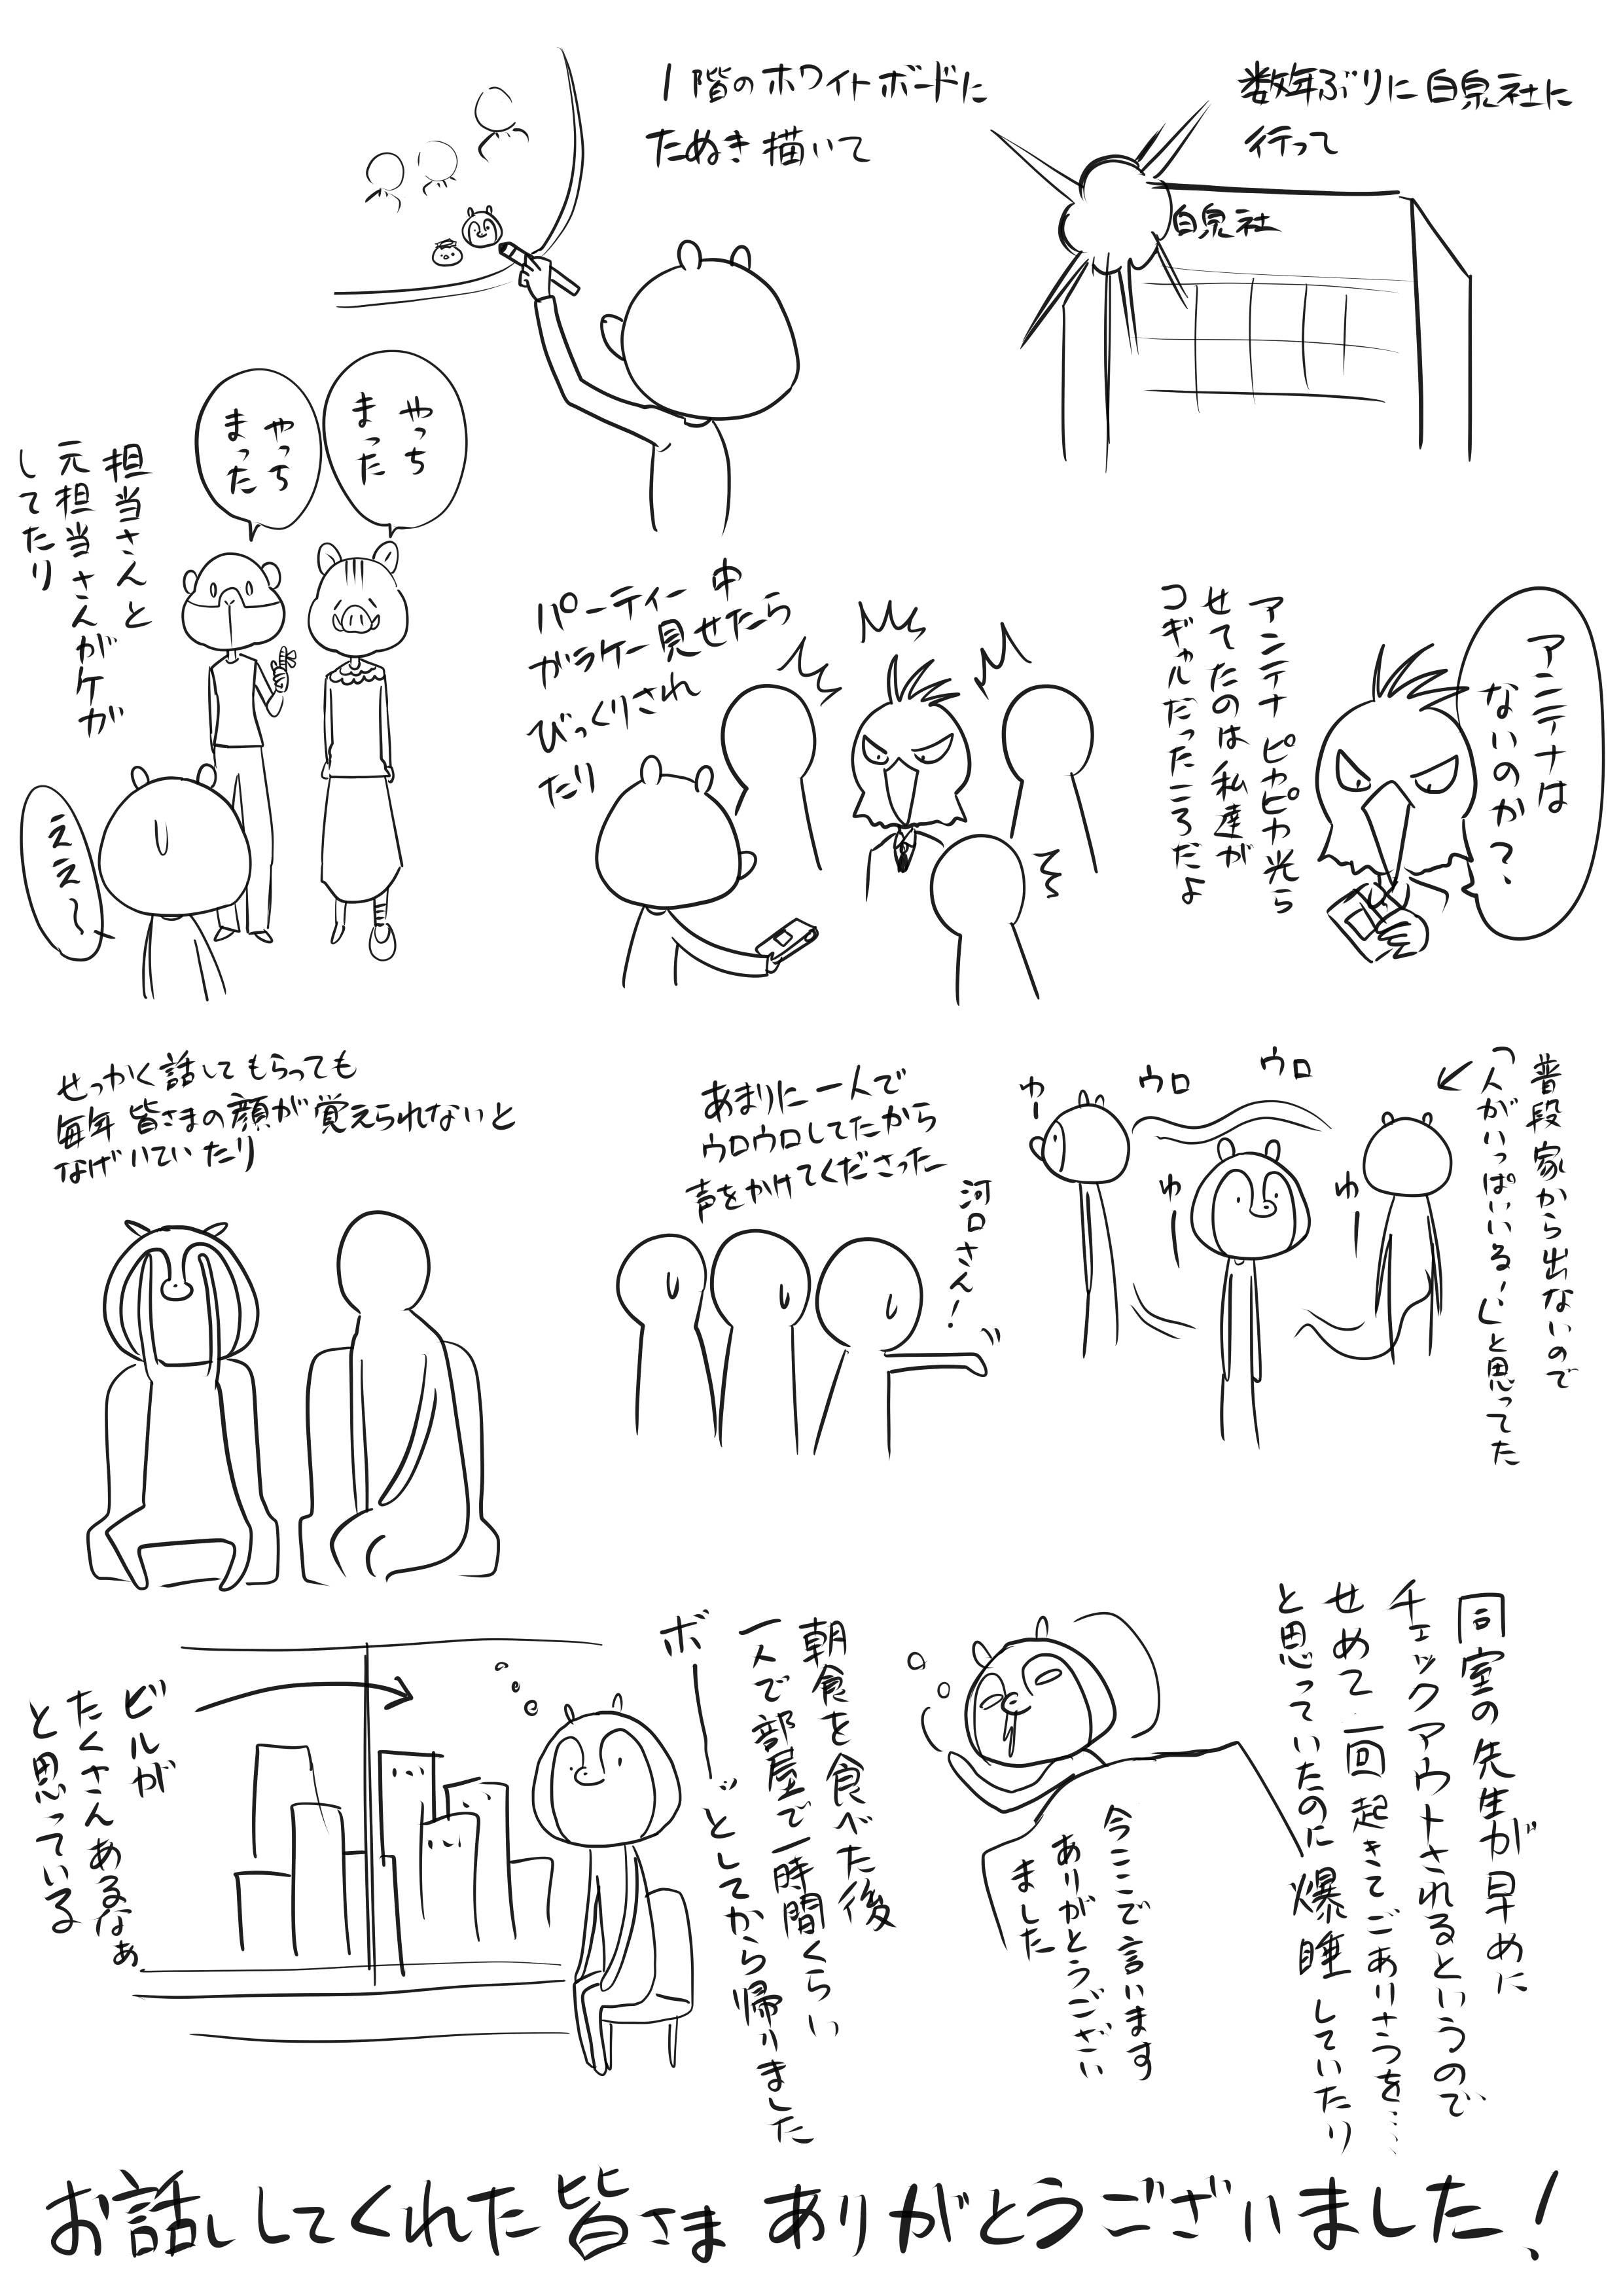 数年ぶりに白泉社に
行って
白泉社
1階のホワイトボードに
たぬき描いて
やっち
まった
やっち
まった
担当さんと
元担当さんがケガ
してたり
ええ〜
アンテナは
ないのか?
アンテナピカピカ光ら
せてたのは私達が
コギャルだったころだよ
パーティー中
ガラケー見せたら
びっくりされ
たり
普段家から出ないので
「人がいっぱいいる!」と思ってた
ウロ
ウロ
ゆー
ゆー
ゆー
あまりに一人で
ウロウロしてたから
声をかけてくださった
河口さん!
せっかく話してもらっても
毎年皆さまの顔が覚えられないと
なげいていたり
同室の先生が早めに
チェックアウトされるというので
せめて一回起きてごあいさつを…
と思っていたのに爆睡していたり
今ここで言います
ありがとうござい
ました
朝食を食べた後
一人で部屋で一時間くらい
ボーッとしてから帰りました
ビルが
たくさんあるなぁ
と思っている
お話ししてくれた皆さまありがとうございました!